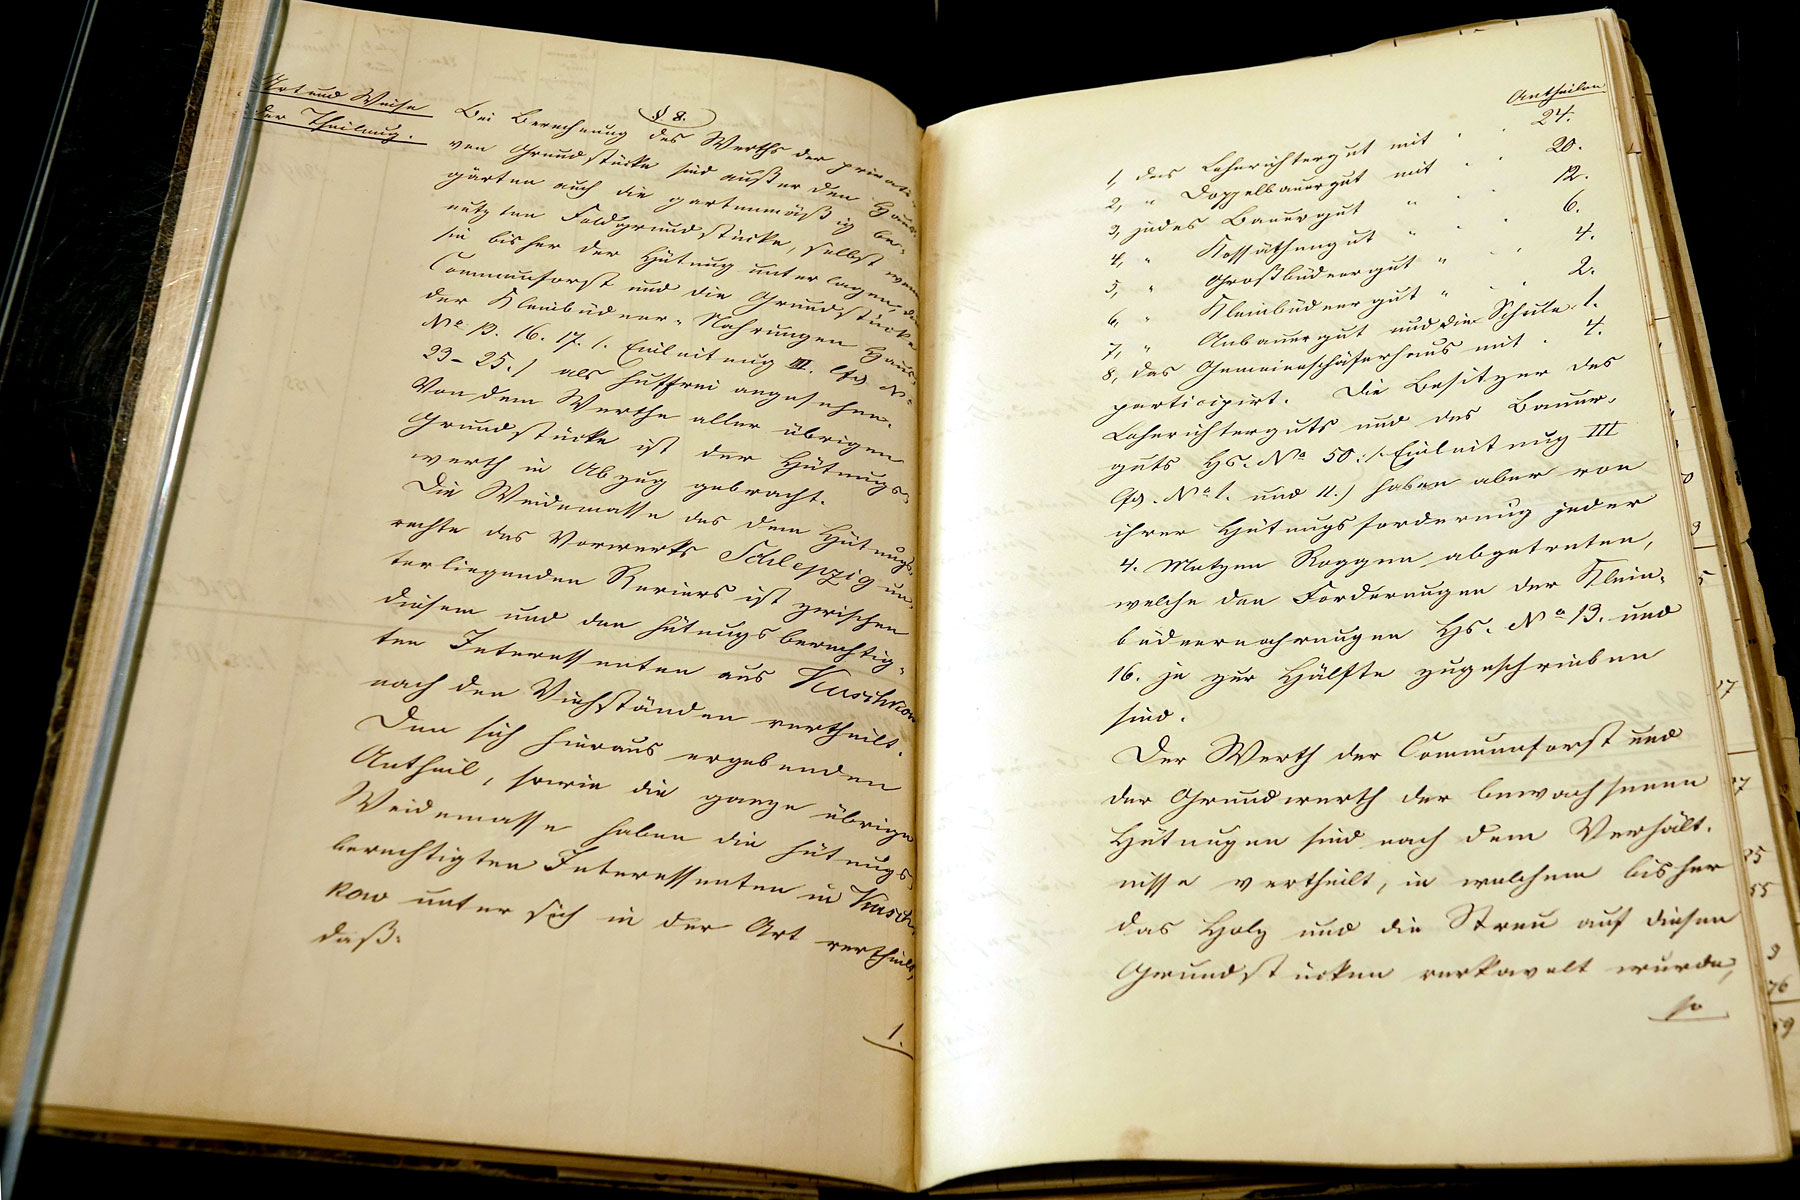 Art und Weise
der Theilung.
§. 8.
Bei Berechnung des Werths der privati-
ven Grundstücke sind außer den Haus-
gärten auch die gartenmäßig be-
nutzten Feldgrundstücke, selbst wenn
sie bisher der Hütung unterlagen, die
Communforst und die Grundstücke
der Kleinbüdner-Nahrungen Haus-
No 13. 16. 17. /. Einleitung III. lfd. No
23-25./ als hutfrei angesehen.
Von dem Werthe aller übrigen
Grundstücke ist der Hütungs-
werth in Abzug gebracht.
Die Weidemasse des dem Hütungs-
rechte des Vorwerks Schlepzig un-
terliegenden Reviers ist zwischen
diesem und den hütungsberechtig-
ten Interessenten aus Kuschkow
nach den Viehständen vertheilt.
Den sich hieraus ergebenden
Antheil, sowie die ganze übrige
Weidemasse haben die hütungs-
berechtigten Interessenten in Kusch-
kow unter sich in der Art vertheilt,
daß:
1.
Antheilen
1, das Lehnrichtergut mit . . 24.
2, " Doppelbauergut mit . . 20.
3, jedes Bauergut " . . 12.
4, " Kossäthengut " . . 6.
5, " Großbüdnergut " . . 4.
6, " Kleinbüdnergut " . . 2.
7, " Anbauergut und die Schule . 1.
8, das Gemeindeschäferhaus mit . 4.
participirt. Die Besitzer des
Lehnrichterguts und des Bauer-
guts Hs. No 50 /. Einleitung III
lfd. No 1. und 11./ haben aber von
ihrer Hütungsforderung jeder
4. Metzen Roggen abgetreten,
welche den Forderungen der Klein-
büdnernahrungen Hs. No 13. und
16. je zur Hälfte zugeschrieben
sind.
Der Werth der Communforst und
der Grundwerth der bewachsenen
Hütungen sind nach dem Verhält-
nisse vertheilt, in welchem bisher
das Holz und die Streu auf diesen
Grundstücken verkavelt wurde,
so